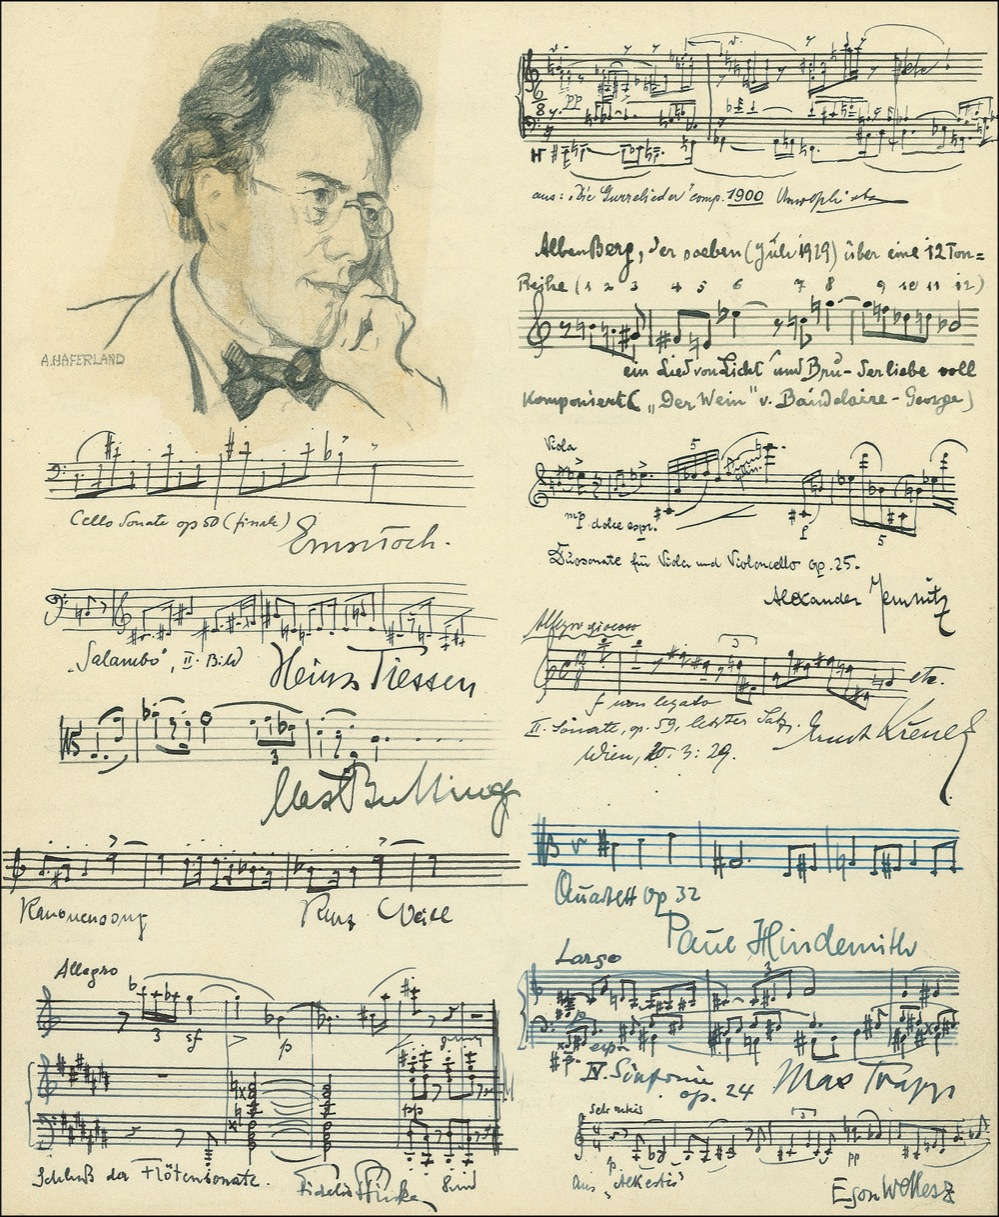 A. HAFERLAND
Cello Sonate op 50 (finale)
Ernst Toch.
„Salambo", II. Bild
Heinz Tiessen
3
Max Butting
Kanonensong
Kurt Weill
Allegro
3 sf > p
pp
Schluß der Flötensonate.
pp
aus: „Die Gurrelieder" comp. 1900
Alban Berg, der soeben (Juli 1929) über eine 12 Ton=
Reihe (1 2 3 4 5 6 7 8 9 10 11 12)
ein Lied von Licht und Bru-derliebe voll
komponiert („Der Wein" v. Baudelaire-George)
Viola
5
mp dolce espr.
5
Duosonate für Viola und Violoncello op. 25.
Alexander Jemnitz
Allegro giocoso
3
etc.
f non legato
II. Sonate, op. 59, letzter Satz.
Ernst Křenek
Wien, 20. 3. 29.
Quartett op 32
Paul Hindemith
Largo
3
p
espr
IV. Sinfonie
op. 24
Max Trapp
3
p
pp
aus „Alkestis"
Egon Wellesz